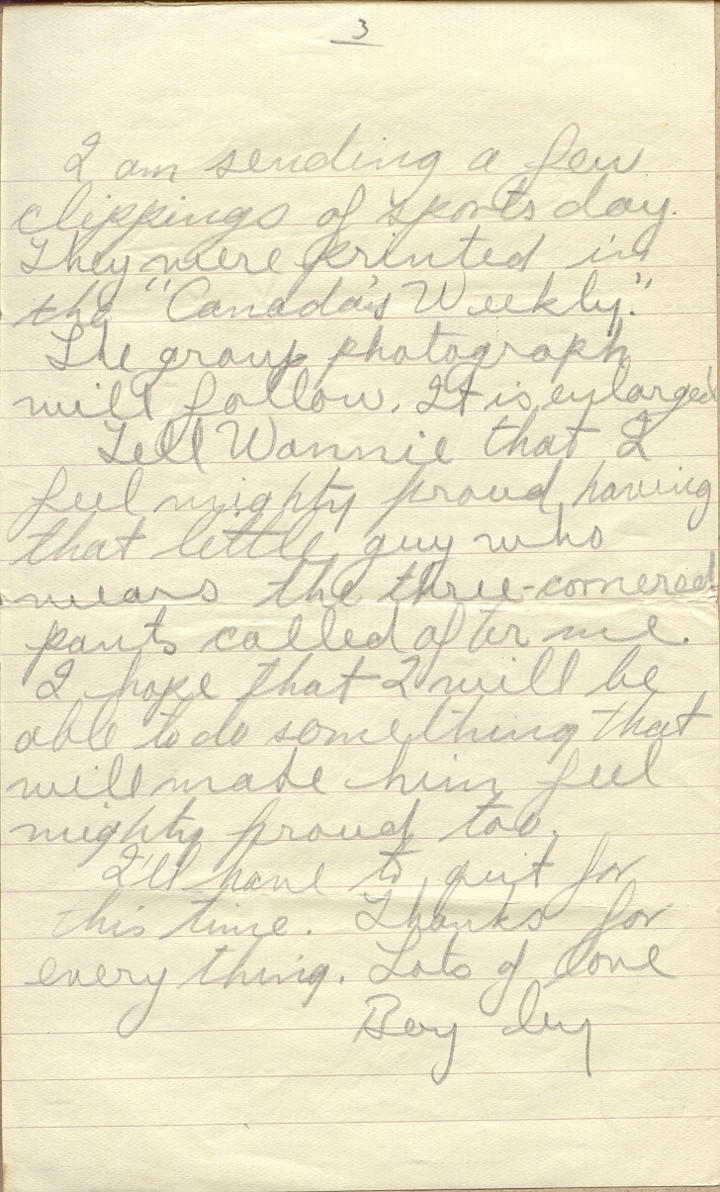 3
I am sending a few
clippings of sports day.
They were printed in
the "Canada's Weekly."
The group photograph
will follow. It is enlarged
Tell Wannie that I
feel mighty proud having
that little guy who
wears the three-cornered
pants called after me.
I hope that I will be
able to do something that
will make him feel
mighty proud too.
I'll have to quit for
this time. Thanks for
every thing. Lots of love